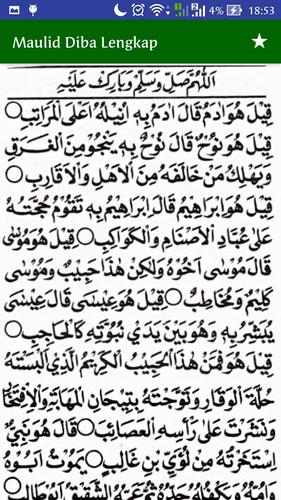 4% 18:53
Maulid Diba Lengkap
اَللّٰهُمَّ صَلِّ وَسَلِّمْ وَبَارِكْ عَلَيْهِ
قِيْلَ هُوَ اٰدَمُ قَالَ اٰدَمُ بِهٖ اُنِيْلُهُ اَعْلَى الْمَرَاتِبِ ○
قِيْلَ هُوَ نُوْحٌ قَالَ نُوْحٌ بِهٖ يَنْجُوْ مِنَ الْغَرَقِ
وَيَهْلِكُ مَنْ خَالَفَهُ مِنَ الْاَهْلِ وَالْاَقَارِبِ ○
قِيْلَ هُوَ اِبْرَاهِيْمُ قَالَ اِبْرَاهِيْمُ بِهٖ تَقُوْمُ حُجَّتُهُ
عَلٰى عُبَّادِ الْاَصْنَامِ وَالْكَوَاكِبِ ○ قِيْلَ هُوَ مُوْسٰى
قَالَ مُوْسٰى اَخُوْهُ وَلٰكِنْ هٰذَا حَبِيْبٌ وَمُوْسٰى
كَلِيْمٌ وَمُخَاطِبٌ ○ قِيْلَ هُوَ عِيْسٰى قَالَ عِيْسٰى
يُبَشِّرُ بِهٖ وَهُوَ بَيْنَ يَدَيْ نُبُوَّتِهٖ كَالْحَاجِبِ ○
قِيْلَ هُوَ فَمَنْ هٰذَا الْحَبِيْبُ الْكَرِيْمُ الَّذِيْ اَلْبَسْتَهُ
حُلَّةَ الْوَقَارِ وَتَوَّجْتَهُ بِتِيْجَانِ الْمَهَابَةِ وَالْاِفْتِخَارِ
وَنَشَرْتَ عَلٰى رَأْسِهِ الْعَصَائِبَ ○ قَالَ هُوَ نَبِيٌّ
اِسْتَخَرْتُهُ مِنْ لُؤَيِّ بْنِ غَالِبٍ ○ يَمُوْتُ اَبُوْهُ